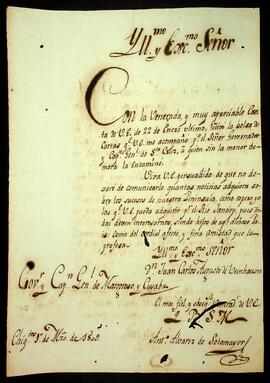 Yll.mo y Exc.mo Señor
Con la Venerada, y muy apreciable Car-
ta de V.E. de 22 de Enero ultimo, recivi la bolsa de
Cartas q.e V.E. me acompaña p.a el Señor Governador
y Cap.n Gen.l de S.ta Cruz, a quien sin la menor de-
mora la encaminé.
Viva V.E. persuadido de que no de-
xaré de comunicarle quantas noticias adquiera so-
bre los sucesos de nuestra Peninsula, como espero yo
las q.e V.E. pueda adquirir p.r el Rio Janeyro, pues to-
das deven interesarnos, siendo hijos de
como del cordial afecto, y fina amistad que le
profesa.
Yll.mo y Exc.mo Señor
D.n Juan Carlos Augusto de Oeinhausen
Gov.or y Cap.n Gen.l de Matogroso, y Cuyavá.
su mas fiel, y obseq.
Q. B. S. M.
Chiq.tos 1.o de Mzo. de 1809.
Ant.o Alvarez de Sotomayor